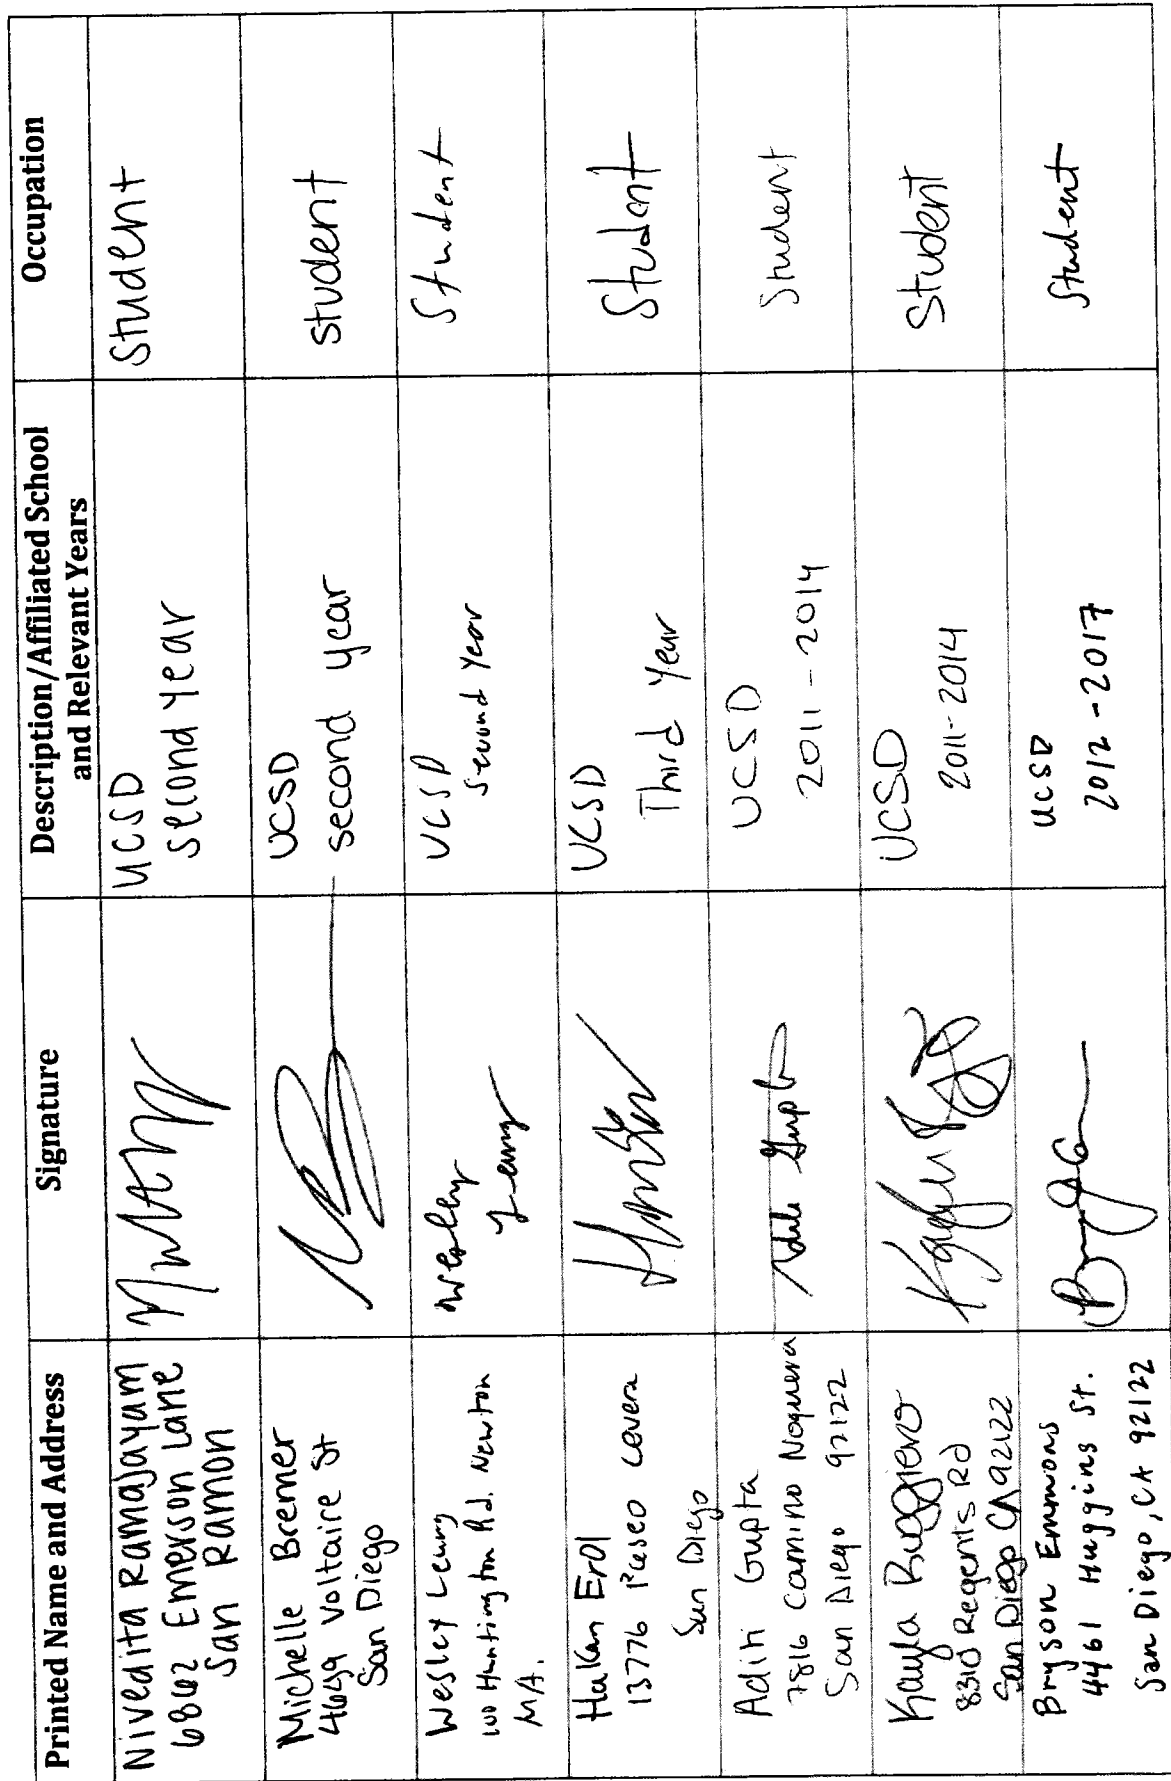 Printed Name and Address
Signature
Description/Affiliated School
and Relevant Years
Occupation
Nivedita Ramajayam
6862 Emerson Lane
San Ramon
UCSD
second year
Student
Michelle Bremer
4649 Voltaire St
San Diego
UCSD
second year
student
Wesley Leung
100 Huntington Rd. Newton
MA.
Wesley
Leung
UCSD
Second Year
Student
Hakan Erol
13776 Paseo Cevera
San Diego
UCSD
Third Year
Student
Aditi Gupta
7816 Camino Noguera
San Diego 92122
Gupta
UCSD
2011-2014
Student
Kayla Ruggiero
8310 Regents Rd
San Diego CA 92122
UCSD
2011-2014
Student
Bryson Emmons
4461 Huggins St.
San Diego, CA 92122
UCSD
2012-2017
Student